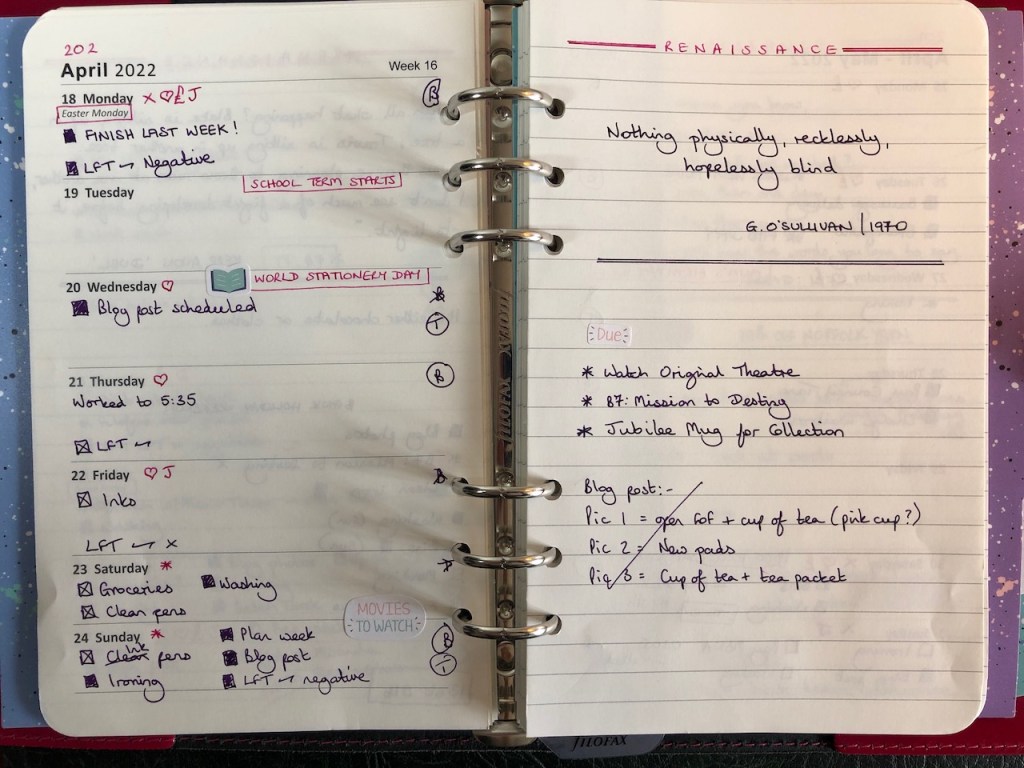 202
April 2022
Week 16
18 Monday X ♡ £ J
B
Easter Monday
■ FINISH LAST WEEK!
■ LFT → Negative
SCHOOL TERM STARTS
19 Tuesday
20 Wednesday ♡
WORLD STATIONERY DAY
■ Blog post scheduled
T
21 Thursday ♡
B
Worked to 5:35
☒ LFT →
22 Friday ♡ J
☒ Inks
LFT → X
23 Saturday *
☒ Groceries ■ Washing
☒ Clean pens
MOVIES
TO WATCH
24 Sunday * ■ Plan week
B
☒ Clean Ink pens ■ Blog post
T
■ Ironing ■ LFT → negative
FILOFAX
RENAISSANCE
Nothing physically, recklessly,
hopelessly blind
G. O'SULLIVAN | 1970
Due
* Watch Original Theatre
* B7: Mission to Destiny
* Jubilee Mug for Collection
Blog post:-
Pic 1 = open FoF + cup of tea (pink cup?)
Pic 2 = New pads
Pic 3 = Cup of tea + tea packet
FILOFAX